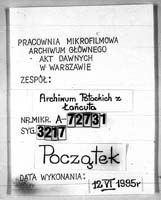 PRACOWNIA MIKROFILMOWA
ARCHIWUM GŁÓWNEGO
AKT DAWNYCH
W WARSZAWIE
ZESPÓŁ:
Archiwum Potockich z
Łańcuta
NR.MIKR. A-72731
SYG. 3217
Początek
DATA WYKONANIA:
12 VI 1995r